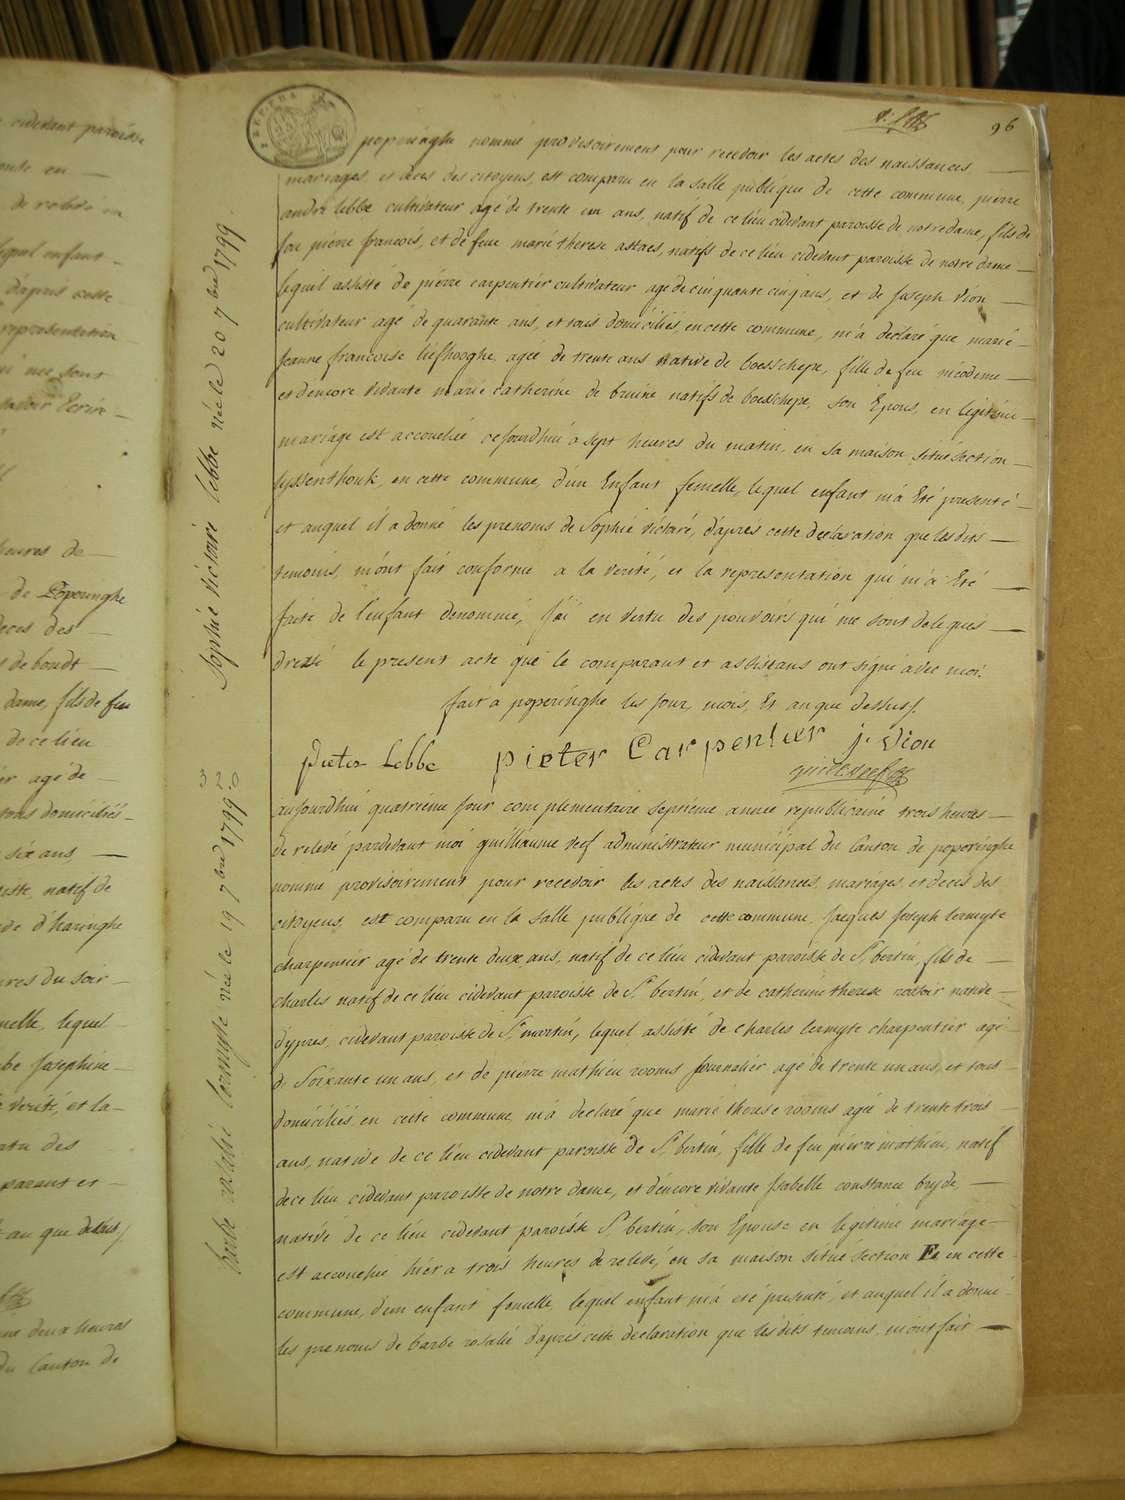 cidevant paroisse
onte en
de relevé en
lequel enfant
d'après cette
representation
qui me sont
savoir Ecrire
heures de
de Poperinghe
deces des
de boudt
dame, fils de feu
de ce lieu
er agé de
tous domiciliés
six ans,
iste, natif de
de d'haringhe
ures du soir
melle, lequel
be Josephine
verité, et la
rtu des
parant et
au que dessus
deux heures
du Canton de
96
poperinghe nommé provisoirement pour recevoir les actes des naissances
mariages, et deces des citoyens, est comparu en la salle publique de cette commune, pierre
andré lebbe cultivateur agé de trente un ans, natif de ce lieu cidevant paroisse de notre dame, fils de
feu pierre francois, et de feue marie therese astaes, natifs de ce lieu cidevant paroisse de notre dame
lequel assisté de pierre carpentier cultivateur agé de cinquante cinq ans, et de Joseph Dion
cultivateur agé de quarante ans, et tous domiciliés, en cette commune, m'a declaré que marie
Jeanne francoise liefhooghe, agée de trente ans native de boesschepe, fille de feu nicodeme
et d'encore vivante marie catherine de bruine natifs de boesschepe, son Epous, en legitime
mariage est accouchée cejourdhui a sept heures du matin, en sa maison située section
lyssenthouk, en cette commune, d'un Enfant femelle, lequel enfant m'a Eté presenté
et auquel il a donné les prenoms de Sophie victoire, d'après cette declaration que les dits
temoins, m'ont fait conforme a la verité, et la representation qui m'a Eté
faite de l'enfant denommé, J'ai en vertu des pouvoirs qui me sont delegués
dressé le present acte que le comparant et assistans ont signé avec moi.
fait a poperinghe les jour, mois, et an que dessus.
Pieter Lebbe pieter Carpentier j. Dion
Sophie victoire lebbe née le 20 7bre 1799.
aujourdhui quatrieme jour complementaire septieme année republicaine trois heures
de relevé pardevant moi guilliaume neef administrateur municipal du Canton de poperinghe
nommé provisoirement pour recevoir les actes des naissances, mariages, et deces des
citoyens, est comparu en la salle publique de cette commune, Jacques Joseph lermyte
charpentier agé de trente deux ans, natif de ce lieu cidevant paroisse de St. bertin, fils de
charles natif de ce lieu cidevant paroisse de St. bertin, et de catherine therese native
d'ypres, cidevant paroisse de St. martin, lequel assisté de charles lermyte charpentier agé
de Soixante un ans, et de pierre mathieu rooms journalier agé de trente un ans, et tous
domiciliés, en cette commune, m'a declaré que marie therese rooms agée de trente trois
ans, native de ce lieu cidevant paroisse de St. bertin, fille de feu pierre mathieu, natif
de ce lieu cidevant paroisse de notre dame, et d'encore vivante Isabelle constance bryde,
native de ce lieu cidevant paroisse St. bertin, son Epouse en legitime mariage
est accouchée hier a trois heures de relevé, en sa maison située section F, en cette
commune, d'un enfant femelle, lequel enfant m'a eté presenté, et auquel il a donné
les prenoms de barbe rosalie d'après cette declaration que les dits temoins, m'ont fait
barbe rosalie lermyte née le 19 7bre 1799.